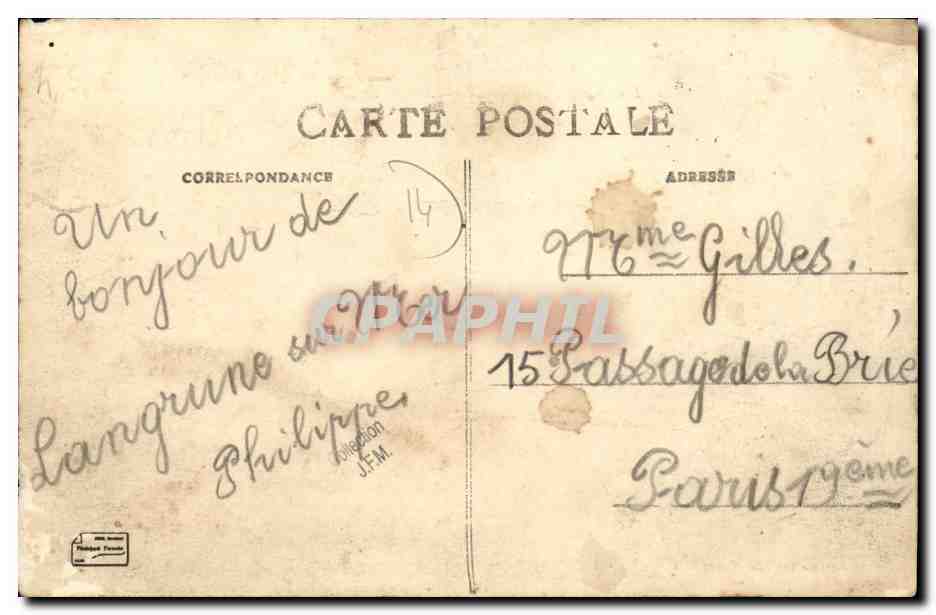 CARTE POSTALE
CORRESPONDANCE
ADRESSÉE
14
Un
bonjour de
Langrune sur Mer
Philippe.
Mme Gilles.
15 Passage de la Brie
Paris 19ème
CPAPHIL
Collection
J.F.M.